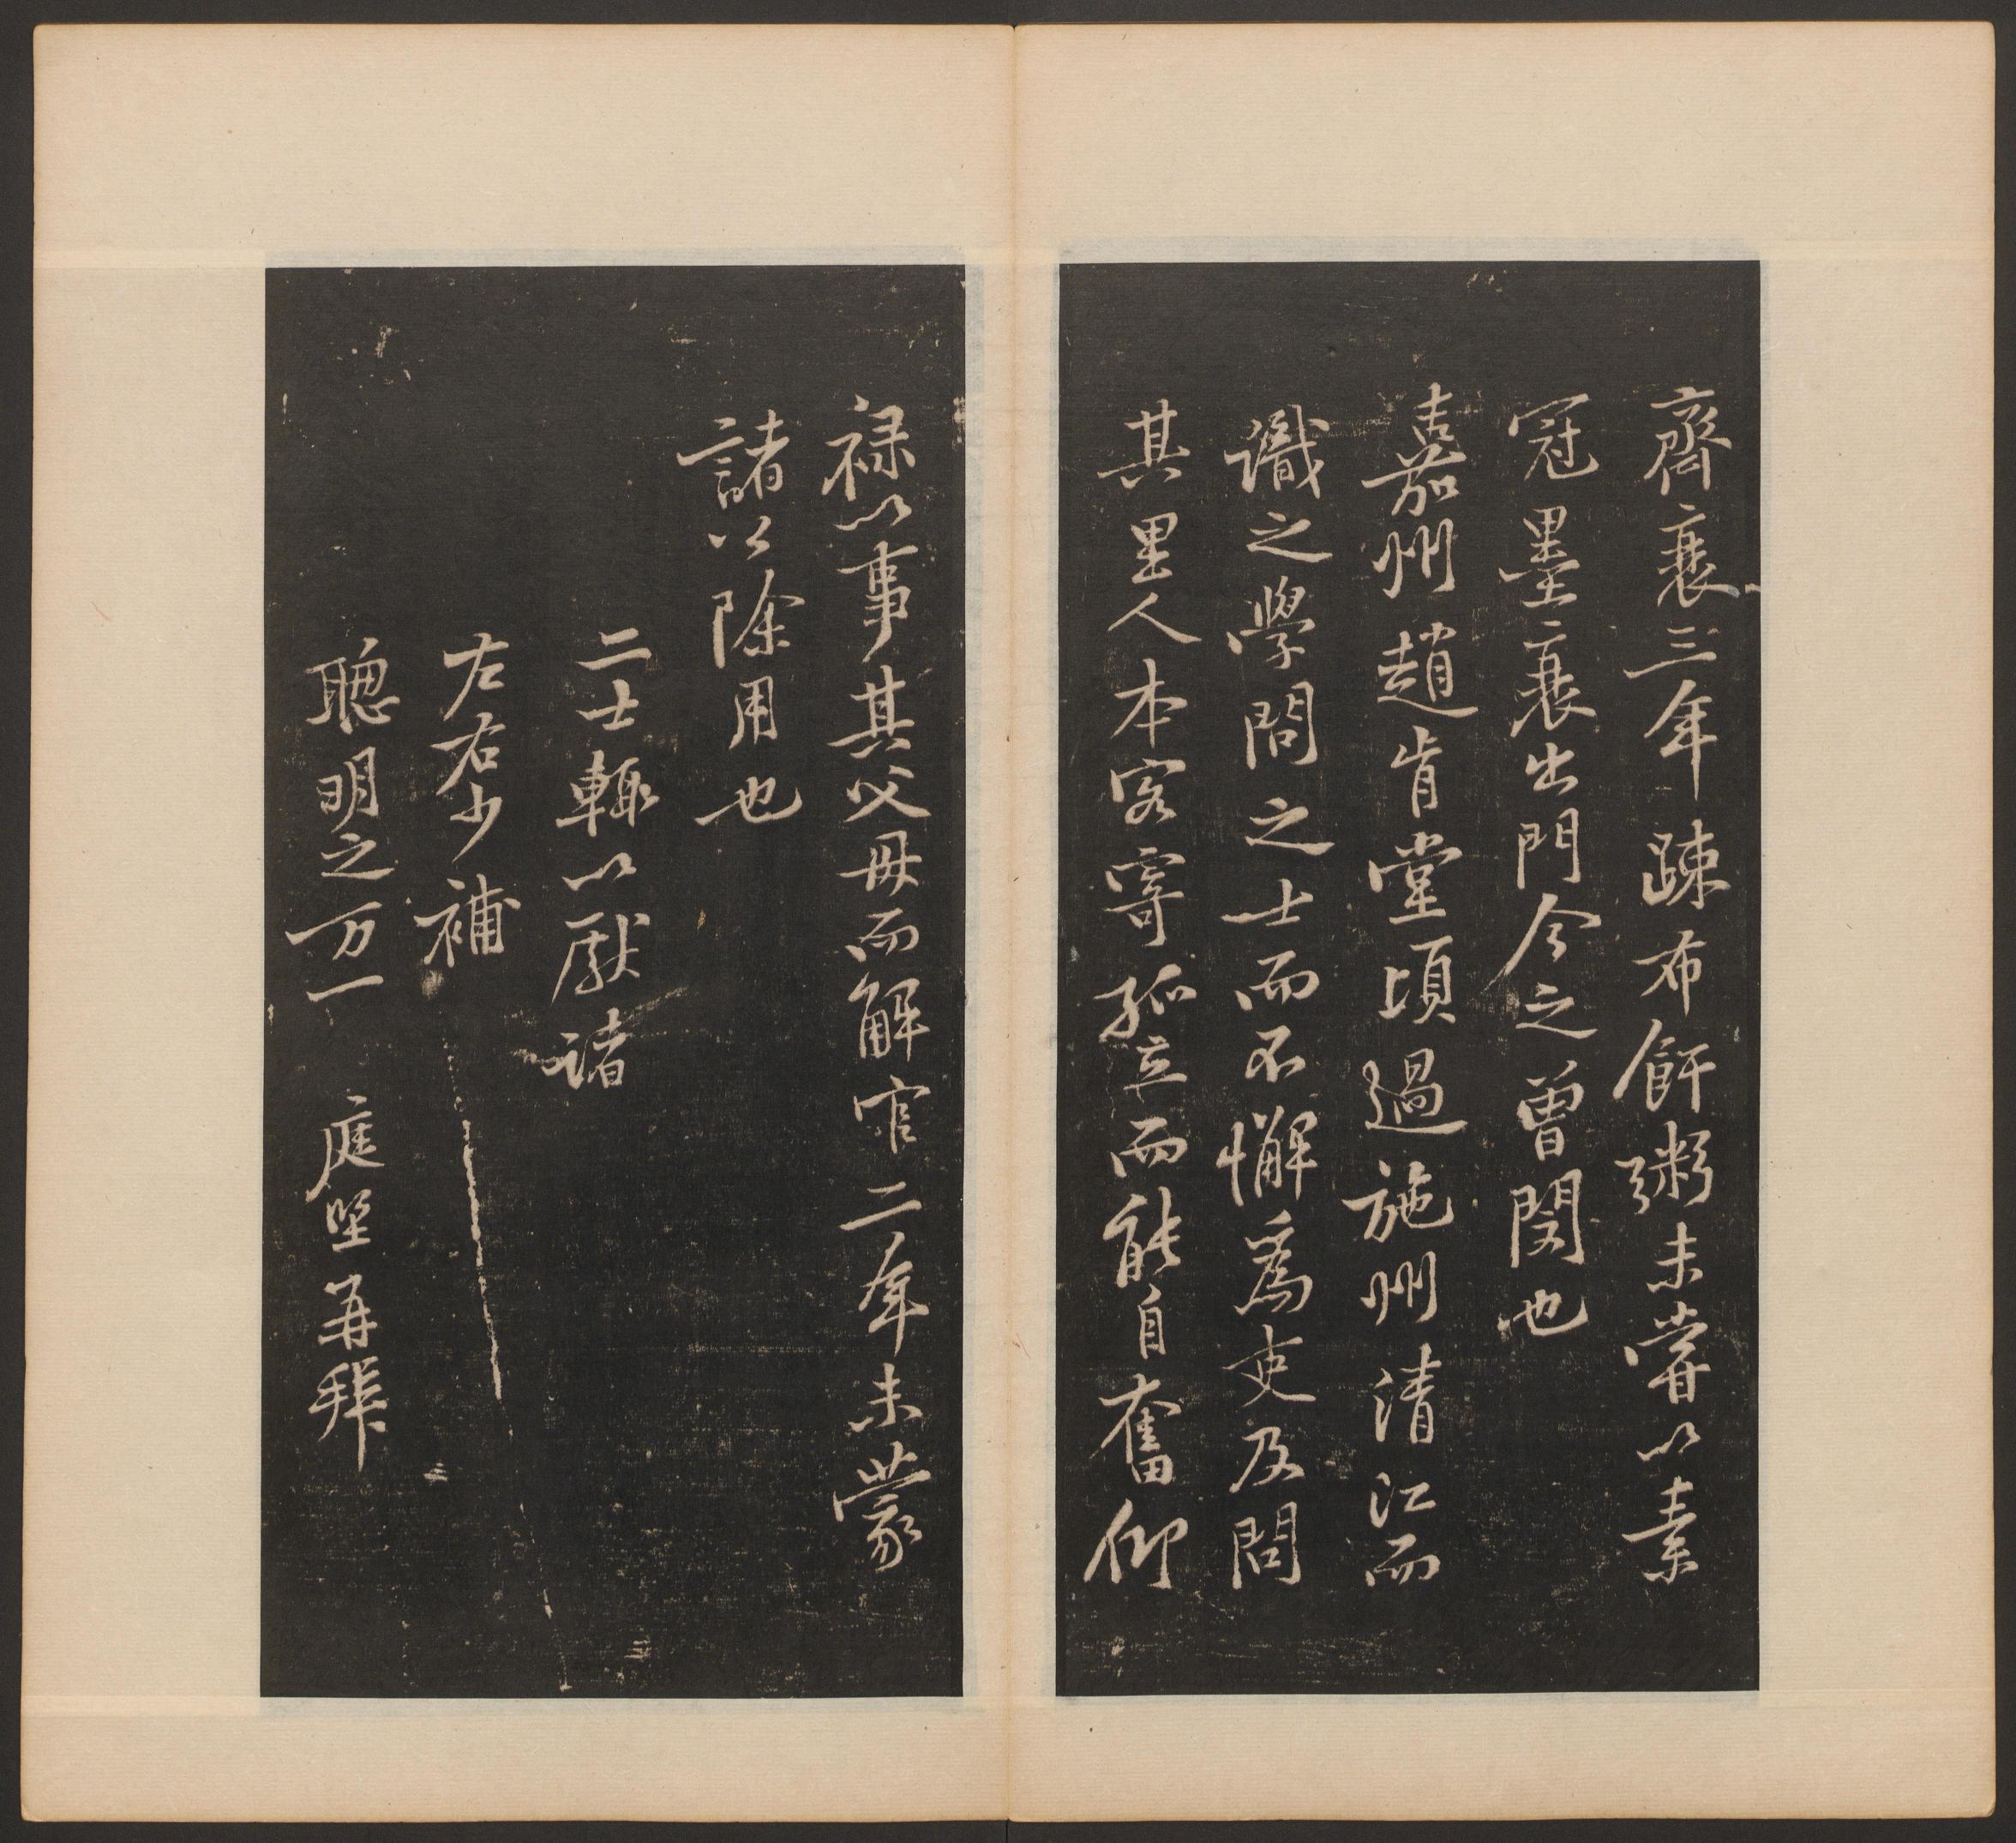 齊衰三年疎布飦粥未嘗以素
冠墨衰出門今之曾閔也
嘉州趙肯堂頃過施州清江而
識之學問之士而不懈爲吏及問
其里人本客寄孤立而能自奮仰
禄以事其父母而解官二年未蒙
諸以除用也
二士輙以獻諸
左右少補
聰明之万一 庭堅再拜